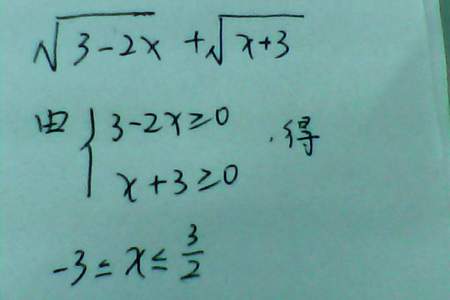 √(3-2x) + √(x+3)
由 { 3-2x≥0
x+3≥0 .得
-3≤x≤3/2